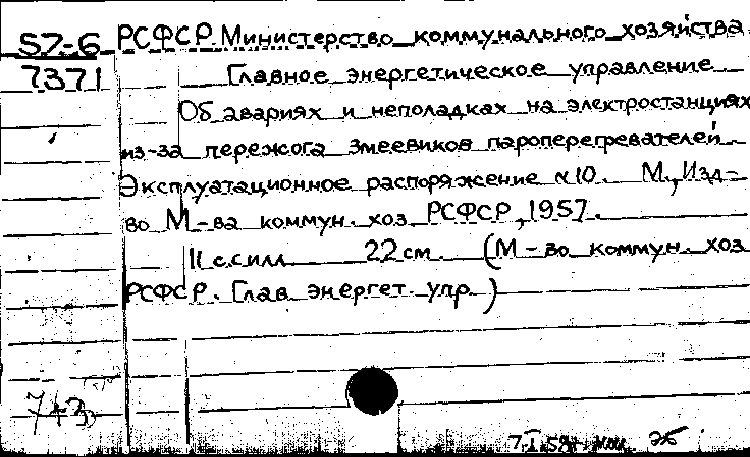 57-6 РСФСР. Министерство коммунального хозяйства
7371 Главное энергетическое управление
Об авариях и неполадках на электростанциях
из-за пережога змеевиков пароперегревателей
Эксплуатационное распоряжение №10. М., Изд-
во М-ва коммун. хоз РСФСР, 1957.
11 с.силл 22 см. (М-во коммун. хоз
РСФСР. Глав энергет. упр.)